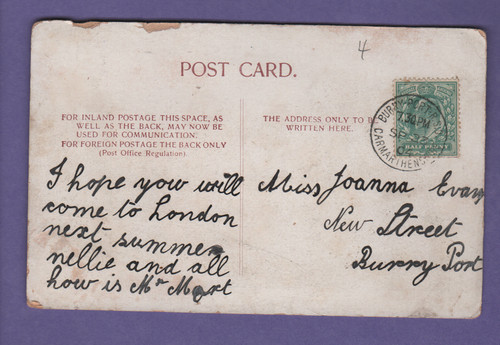 4
POST CARD.
FOR INLAND POSTAGE THIS SPACE, AS
WELL AS THE BACK, MAY NOW BE
USED FOR COMMUNICATION:
FOR FOREIGN POSTAGE THE BACK ONLY
(Post Office Regulation)
THE ADDRESS ONLY TO BE
WRITTEN HERE.
BURRY-PORT
7.30 PM
SP
CARMARTHENS
HALF PENNY
I hope you will
come to London
next summer
nellie and all
how is Mr Mort
Miss Joanna Evans
New Street
Burry Port